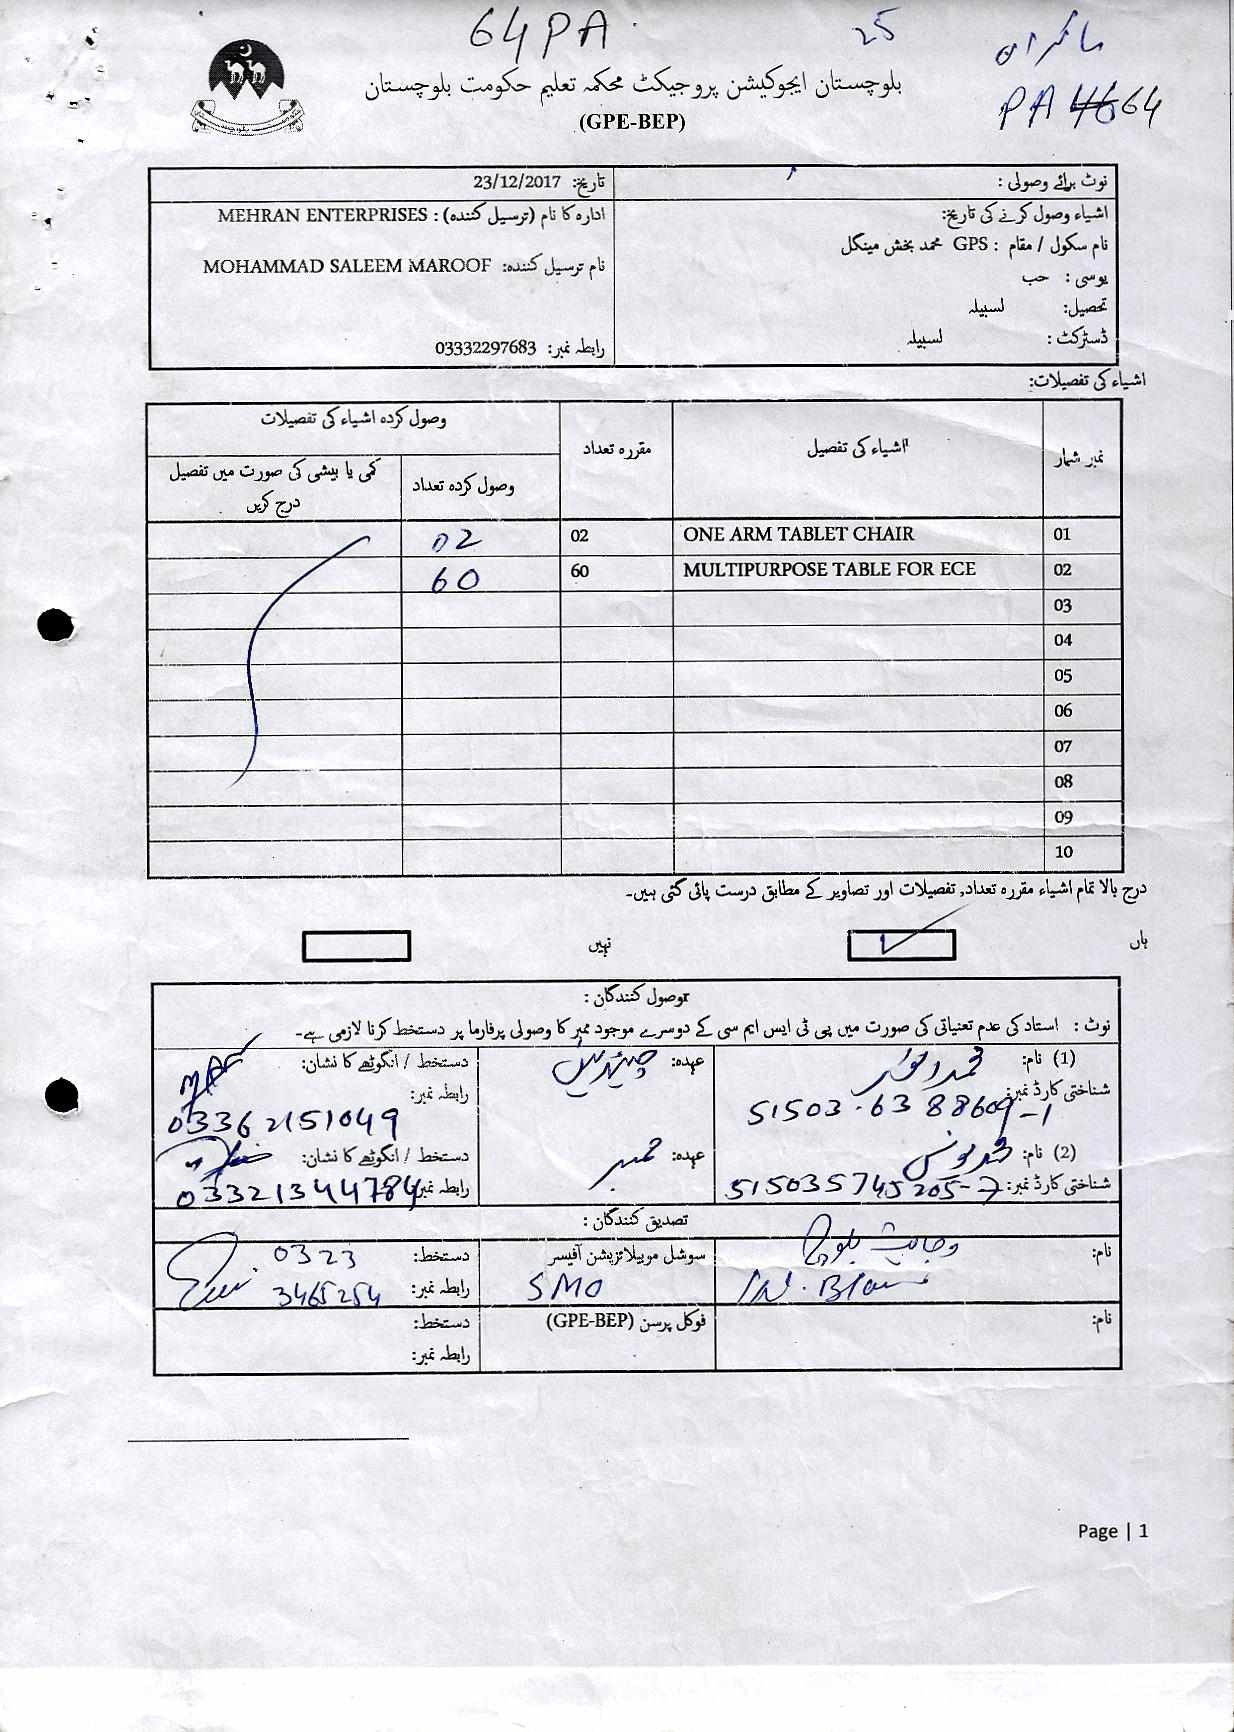 64 PA
25
مکران
PA 64
بلوچستان ایجوکیشن پروجیکٹ محکمہ تعلیم حکومت بلوچستان
(GPE-BEP)
نوٹ برائے وصولی :
تاریخ: 23/12/2017
اشیاء وصول کرنے کی تاریخ:
ادارہ کا نام (ترسیل کنندہ) : MEHRAN ENTERPRISES
نام سکول / مقام : GPS محمد بخش مینگل
نام ترسیل کنندہ: MOHAMMAD SALEEM MAROOF
یوسی : حب
تحصیل: لسبیلہ
ڈسٹرکٹ : لسبیلہ
رابطہ نمبر: 03332297683
اشیاء کی تفصیلات:
نمبر شمار اشیاء کی تفصیل مقررہ تعداد وصول کردہ اشیاء کی تفصیلات
وصول کردہ تعداد کمی یا بیشی کی صورت میں تفصیل درج کریں
01 ONE ARM TABLET CHAIR 02 02
02 MULTIPURPOSE TABLE FOR ECE 60 60
03
04
05
06
07
08
09
10
درج بالا تمام اشیاء مقررہ تعداد, تفصیلات اور تصاویر کے مطابق درست پائی گئی ہیں۔
ہاں نہیں
وصول کنندگان :
نوٹ : استاد کی عدم تعیناتی کی صورت میں پی ٹی ایس ایم سی کے دوسرے موجود ممبر کا وصولی پرفارما پر دستخط کرنا لازمی ہے۔
(1) نام: محمد انور عہدہ: چیئرمین دستخط / انگوٹھے کا نشان:
شناختی کارڈ نمبر: 51503-6388609-1 رابطہ نمبر: 03362151049
(2) نام: محمد یونس عہدہ: ممبر دستخط / انگوٹھے کا نشان:
شناختی کارڈ نمبر: 515035745205-7 رابطہ نمبر: 03321344784
تصدیق کنندگان :
نام: بلوچ سوشل موبیلائزیشن آفیسر دستخط:
SMO رابطہ نمبر: 0323 3465254
نام: فوکل پرسن (GPE-BEP) دستخط:
رابطہ نمبر:
Page | 1